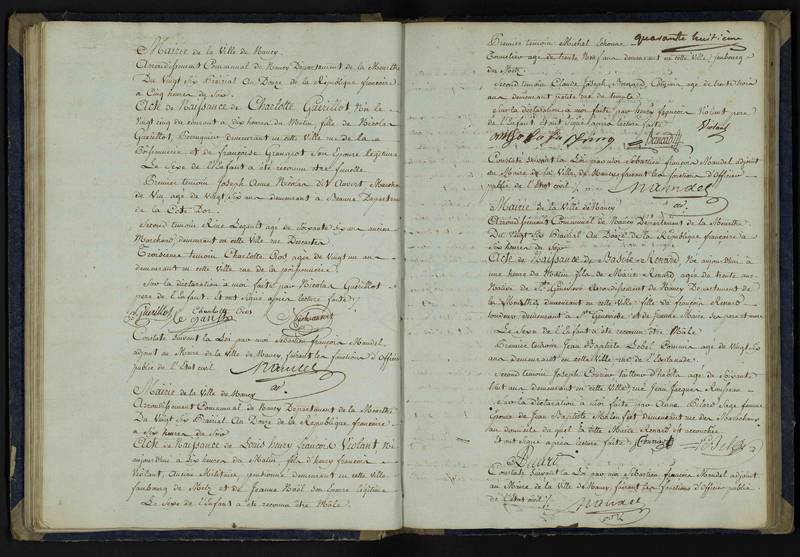 Mairie de la Ville de Nancy
Arrondissement Communal de Nancy Département de la Meurthe
Du Vingt Six Prairial an Douze de la République françoise
à Cinq heures du Soir
Acte de Naissance de Charlotte Guérillot Née le
Vingt cinq du courant à Six heures du Matin, fille de Nicolas
Guérillot, Perruquier demeurant en cette Ville rue de la
Poissonnerie et de françoise Grangeot Son Epouse légitime
Le Sexe de l'Enfant a été reconnu être femelle
Premier temoin Joseph Anne Nicolas dit Auvert, Marchand
de Vin, age de Vingt Six ans demeurant à Beaune Département
de la Côte Dor
Second temoin René age de Soixante Six ans ancien
Marchand, demeurant en cette Ville rue
Troisieme temoin Charlotte Gros agée de Vingt un an
demeurant en cette Ville rue de la poissonnerie
Sur la déclaration à moi faite par Nicolas Guérillot
pere de l'Enfant. Et ont signé après lecture faite
Guérillot Charlotte Gros
Constaté Suivant la Loi par moi Sébastien françois Mandel
adjoint au Maire de la Ville de Nancy, faisant les fonctions d'Officier
public de l'Etat civil
Mandel
adj.
Mairie de la Ville de Nancy
Arrondissement Communal de Nancy Département de la Meurthe
Du Vingt Six Prairial an Douze de la République françoise
à Six heures du Soir
Acte de Naissance de Louis henry françois Violant Né
aujourdhui à Six heures du Matin fils d'henry françois
Violant, Ancien Militaire pensionné demeurant en cette Ville
faubourg de Metz et de Jeanne Noël son Epouse légitime
Le Sexe de l'Enfant a été reconnu être Mâle
quarante huitième
Premier temoin Michel
Tonnelier age de trente Neuf ans demeurant en cette Ville faubourg
de Metz
Second temoin Claude Joseph Bernard, Citoyen age de trente trois
ans demeurant
Sur la déclaration à moi faite par henry françois Violant pere
de l'Enfant. Et ont signé après lecture faite
Violant
Constaté Suivant la Loi par moi Sébastien françois Mandel adjoint
au Maire de la Ville de Nancy, faisant les fonctions d'Officier
public de l'Etat civil
Mandel
adj.
Mairie de la Ville de Nancy
Arrondissement Communal de Nancy Département de la Meurthe
Du Vingt Six Prairial an Douze de la République françoise à
Six heures du Soir
Acte de Naissance de Renard Né aujourdhui à
une heure du Matin fils de Marie Renard agée de trente ans
Native de Arrondissement de Nancy Département de
la Meurthe, demeurant en cette Ville fille de françois Renard
demeurant à et de Jeanne Marie ses pere et mere
Le Sexe de l'Enfant a été reconnu être Mâle
Premier temoin Jean Baptiste Lobel Commis age de Vingt Six
ans demeurant en cette Ville rue de
Second temoin Joseph tailleur d'habits age de Soixante
huit ans demeurant en cette Ville rue Jean Jacques Rousseau
Sur la déclaration à moi faite par Anne Sage femme
Epouse de Jean Baptiste demeurant rue des Maréchaux
au domicile du quel la dite Marie Renard est accouchée
Et ont signé après lecture faite
Constaté Suivant la Loi par moi Sébastien françois Mandel adjoint
au Maire de la Ville de Nancy, faisant les fonctions d'Officier public
de l'Etat civil
Mandel
adj.